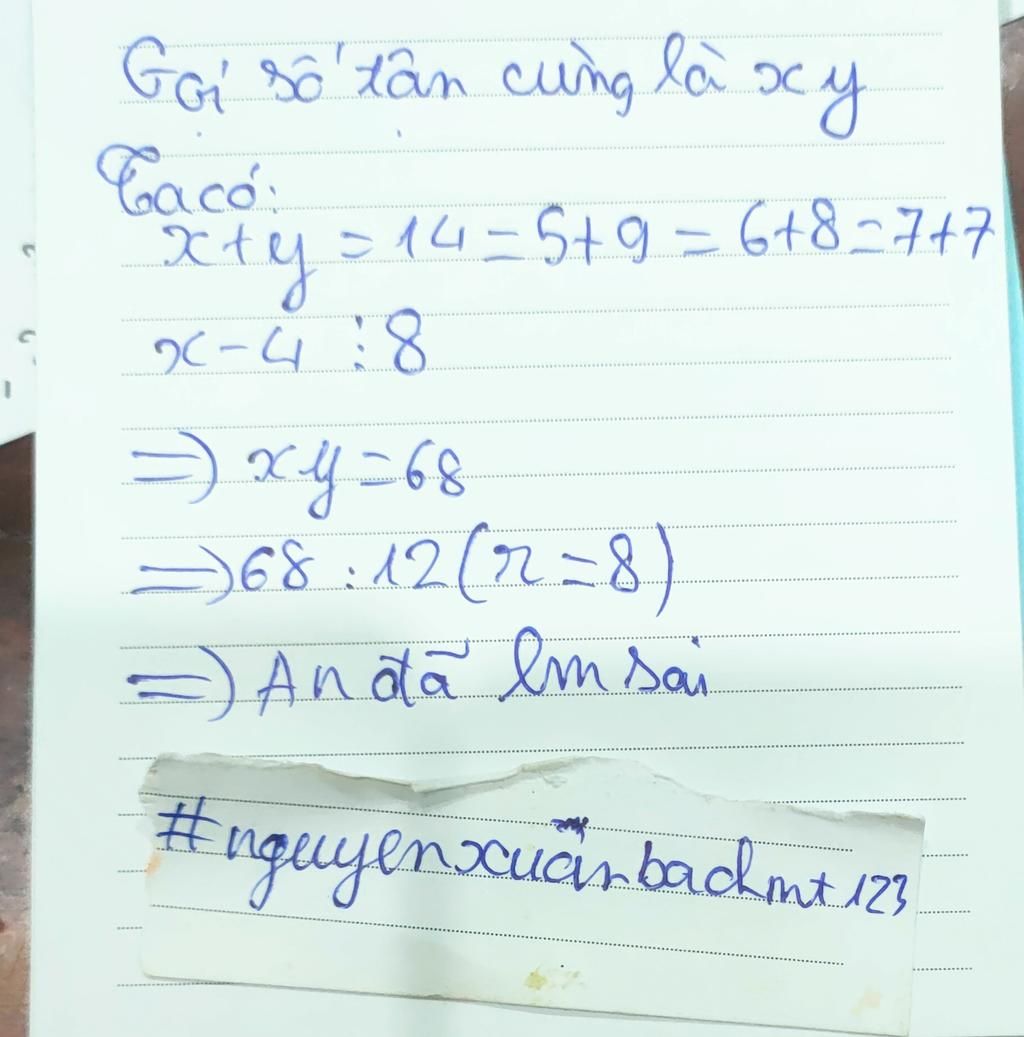 Gọi số tận cùng là xy
Ta có:
x+y=14=5+9=6+8=7+7
x-4⋮8
=>xy=68
=>68:12(r=8)
=>An đã lm sai
#nguyenxuanbachmt123